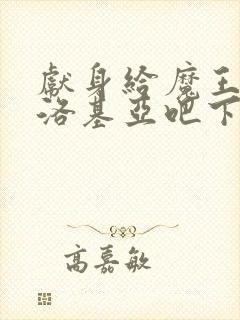 獻身給魔王
洛基亞吧下
高嘉敏